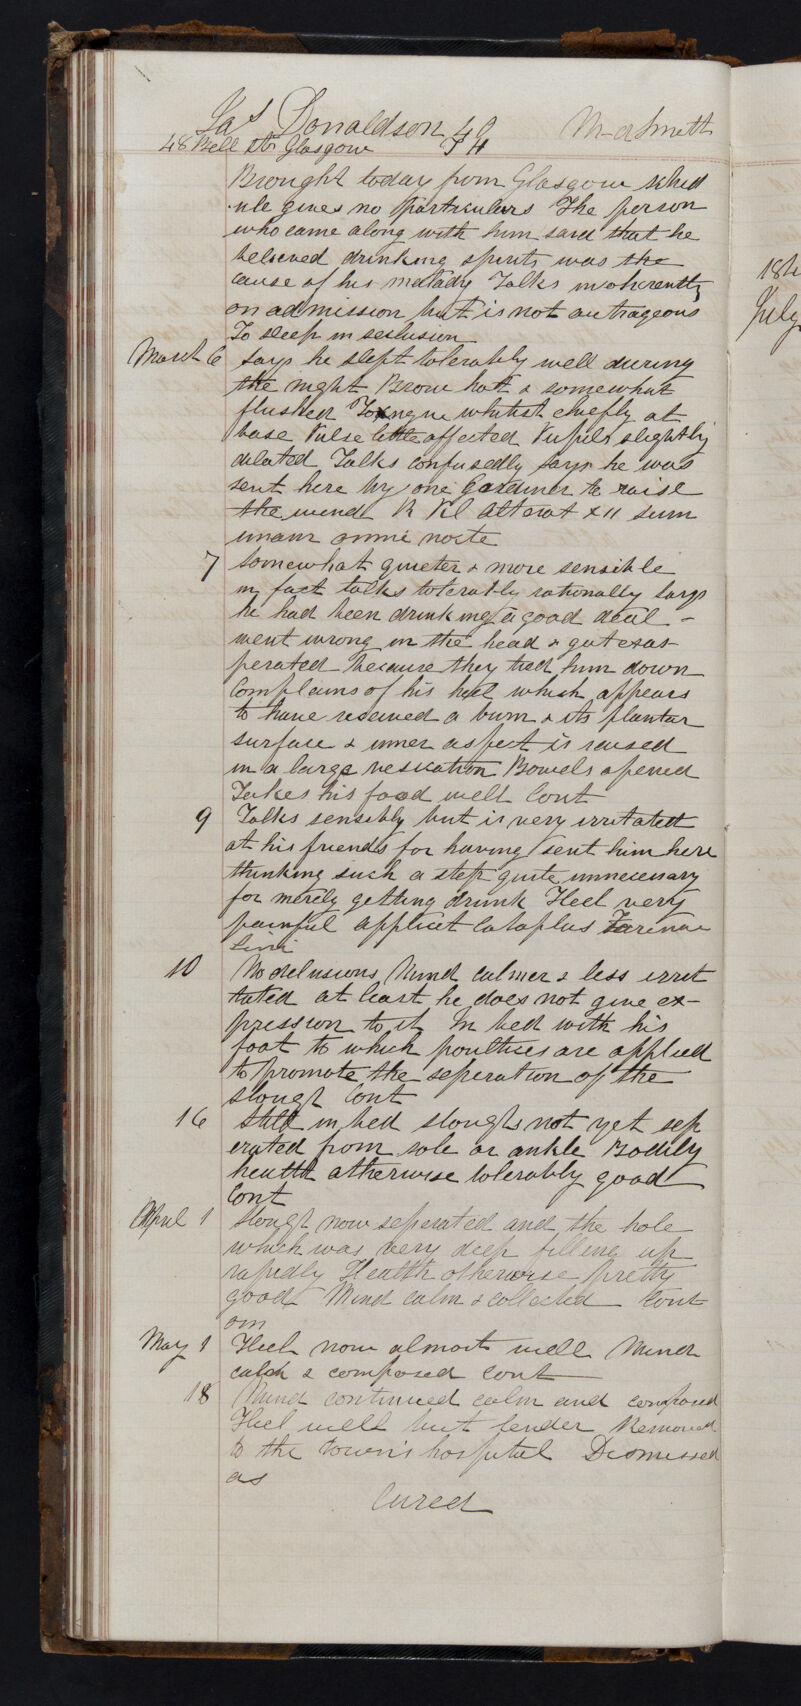 Jas Donaldson 49 M- a Smith
48 Bell str Glasgow
Brought today from Glasgow sched
ule gives no particulars The person
who came along with him said that he
believed drinking spirits was the
cause of his malady Talks incoherently
on admission but is not outrageous
To sleep in seclusion
March 6 Says he slept tolerably well during
the night Brow hott & somewhat
flushed Toungue whitish chiefly at
base Pulse little affected Pupils slightly
dilated Talks confusedly says he was
sent here by one Gardiner to raise
the wind R Pil alterat xii sum
unam omni nocte
7 Somewhat quieter & more sensible
in fact talks tolerably rationally Says
he had been drinking a good deal -
went wrong in the head & got exas
perated because they tied him down
Complains of his heel which appears
to have received a burn & its plantar
surface & inner aspect is raised
in a large vesication Bowels opened
Takes his food well Cont
9 Talks sensibly but is very irritated
at his friends for having sent him here
thinking such a step quite unnecessary
for merely getting drunk Heel very
painful applicet Cataplas Farinae
Lini
10 No delusions Mind calmer & less irrit
tated at least he does not give ex-
pression to it In bed with his
foot to which poultices are applied
to promote the seperation of the
slough Cont
16 Still in bed sloughs not yet sep
erated from sole or ankle Bodily
health otherwise tolerably good
Cont
April 1 Slough now seperated and the hole
which was very deep filling up
rapidly Health otherwise pretty
good Mind calm & collected Cont
om
May 1 Heel now almost well Mind
calm & composed Cont
18 Mind continued calm and composed
Heel well but tender Removed
to the town's hospital Dismissed
as
Cured
184
July